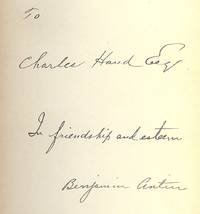 To
Charles Hand Esq
In friendship and esteem
Benjamin Antin